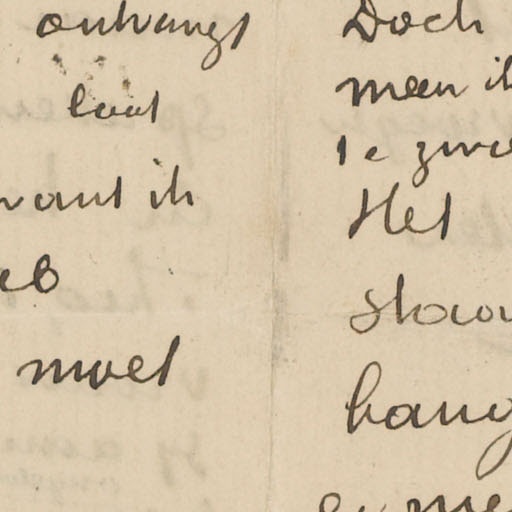 ontvangt
laat
want ik
eb
moet
Doch
meer ik
te zwa
Het
staa
bang